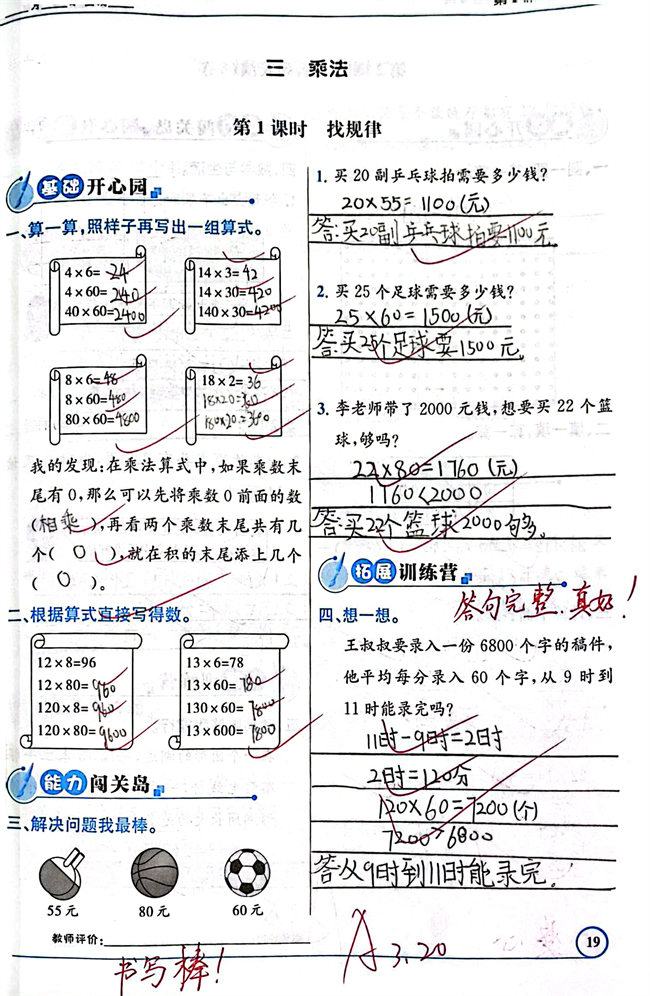 三 乘法
第1课时 找规律
基础开心园
一、算一算,照样子再写出一组算式。
4×6=24
4×60=240
40×60=2400
14×3=42
14×30=420
140×30=4200
8×6=48
8×60=480
80×60=4800
18×2=36
18×20=360
180×20=3600
我的发现:在乘法算式中,如果乘数末
尾有0,那么可以先将乘数0前面的数
(相乘),再看两个乘数末尾共有几
个(0),就在积的末尾添上几个
(0)。
二、根据算式直接写得数。
12×8=96
12×80=960
120×8=960
120×80=9600
13×6=78
13×60=780
130×60=7800
13×600=7800
能力闯关岛
三、解决问题我最棒。
55元 80元 60元
1. 买20副乒乓球拍需要多少钱?
20×55=1100(元)
答:买20副乒乓球拍要1100元.
2. 买25个足球需要多少钱?
25×60=1500(元)
答:买25个足球要1500元.
3. 李老师带了2000元钱,想要买22个篮
球,够吗?
22×80=1760(元)
1760<2000
答:买22个篮球2000句多.
拓展训练营
答句完整.真好!
四、想一想。
王叔叔要录入一份6800个字的稿件,
他平均每分录入60个字,从9时到
11时能录完吗?
11时-9时=2时
2时=120分
120×60=7200(个)
7200>6800
答:从9时到11时能录完.
教师评价:
书写棒!
A 3.20
19